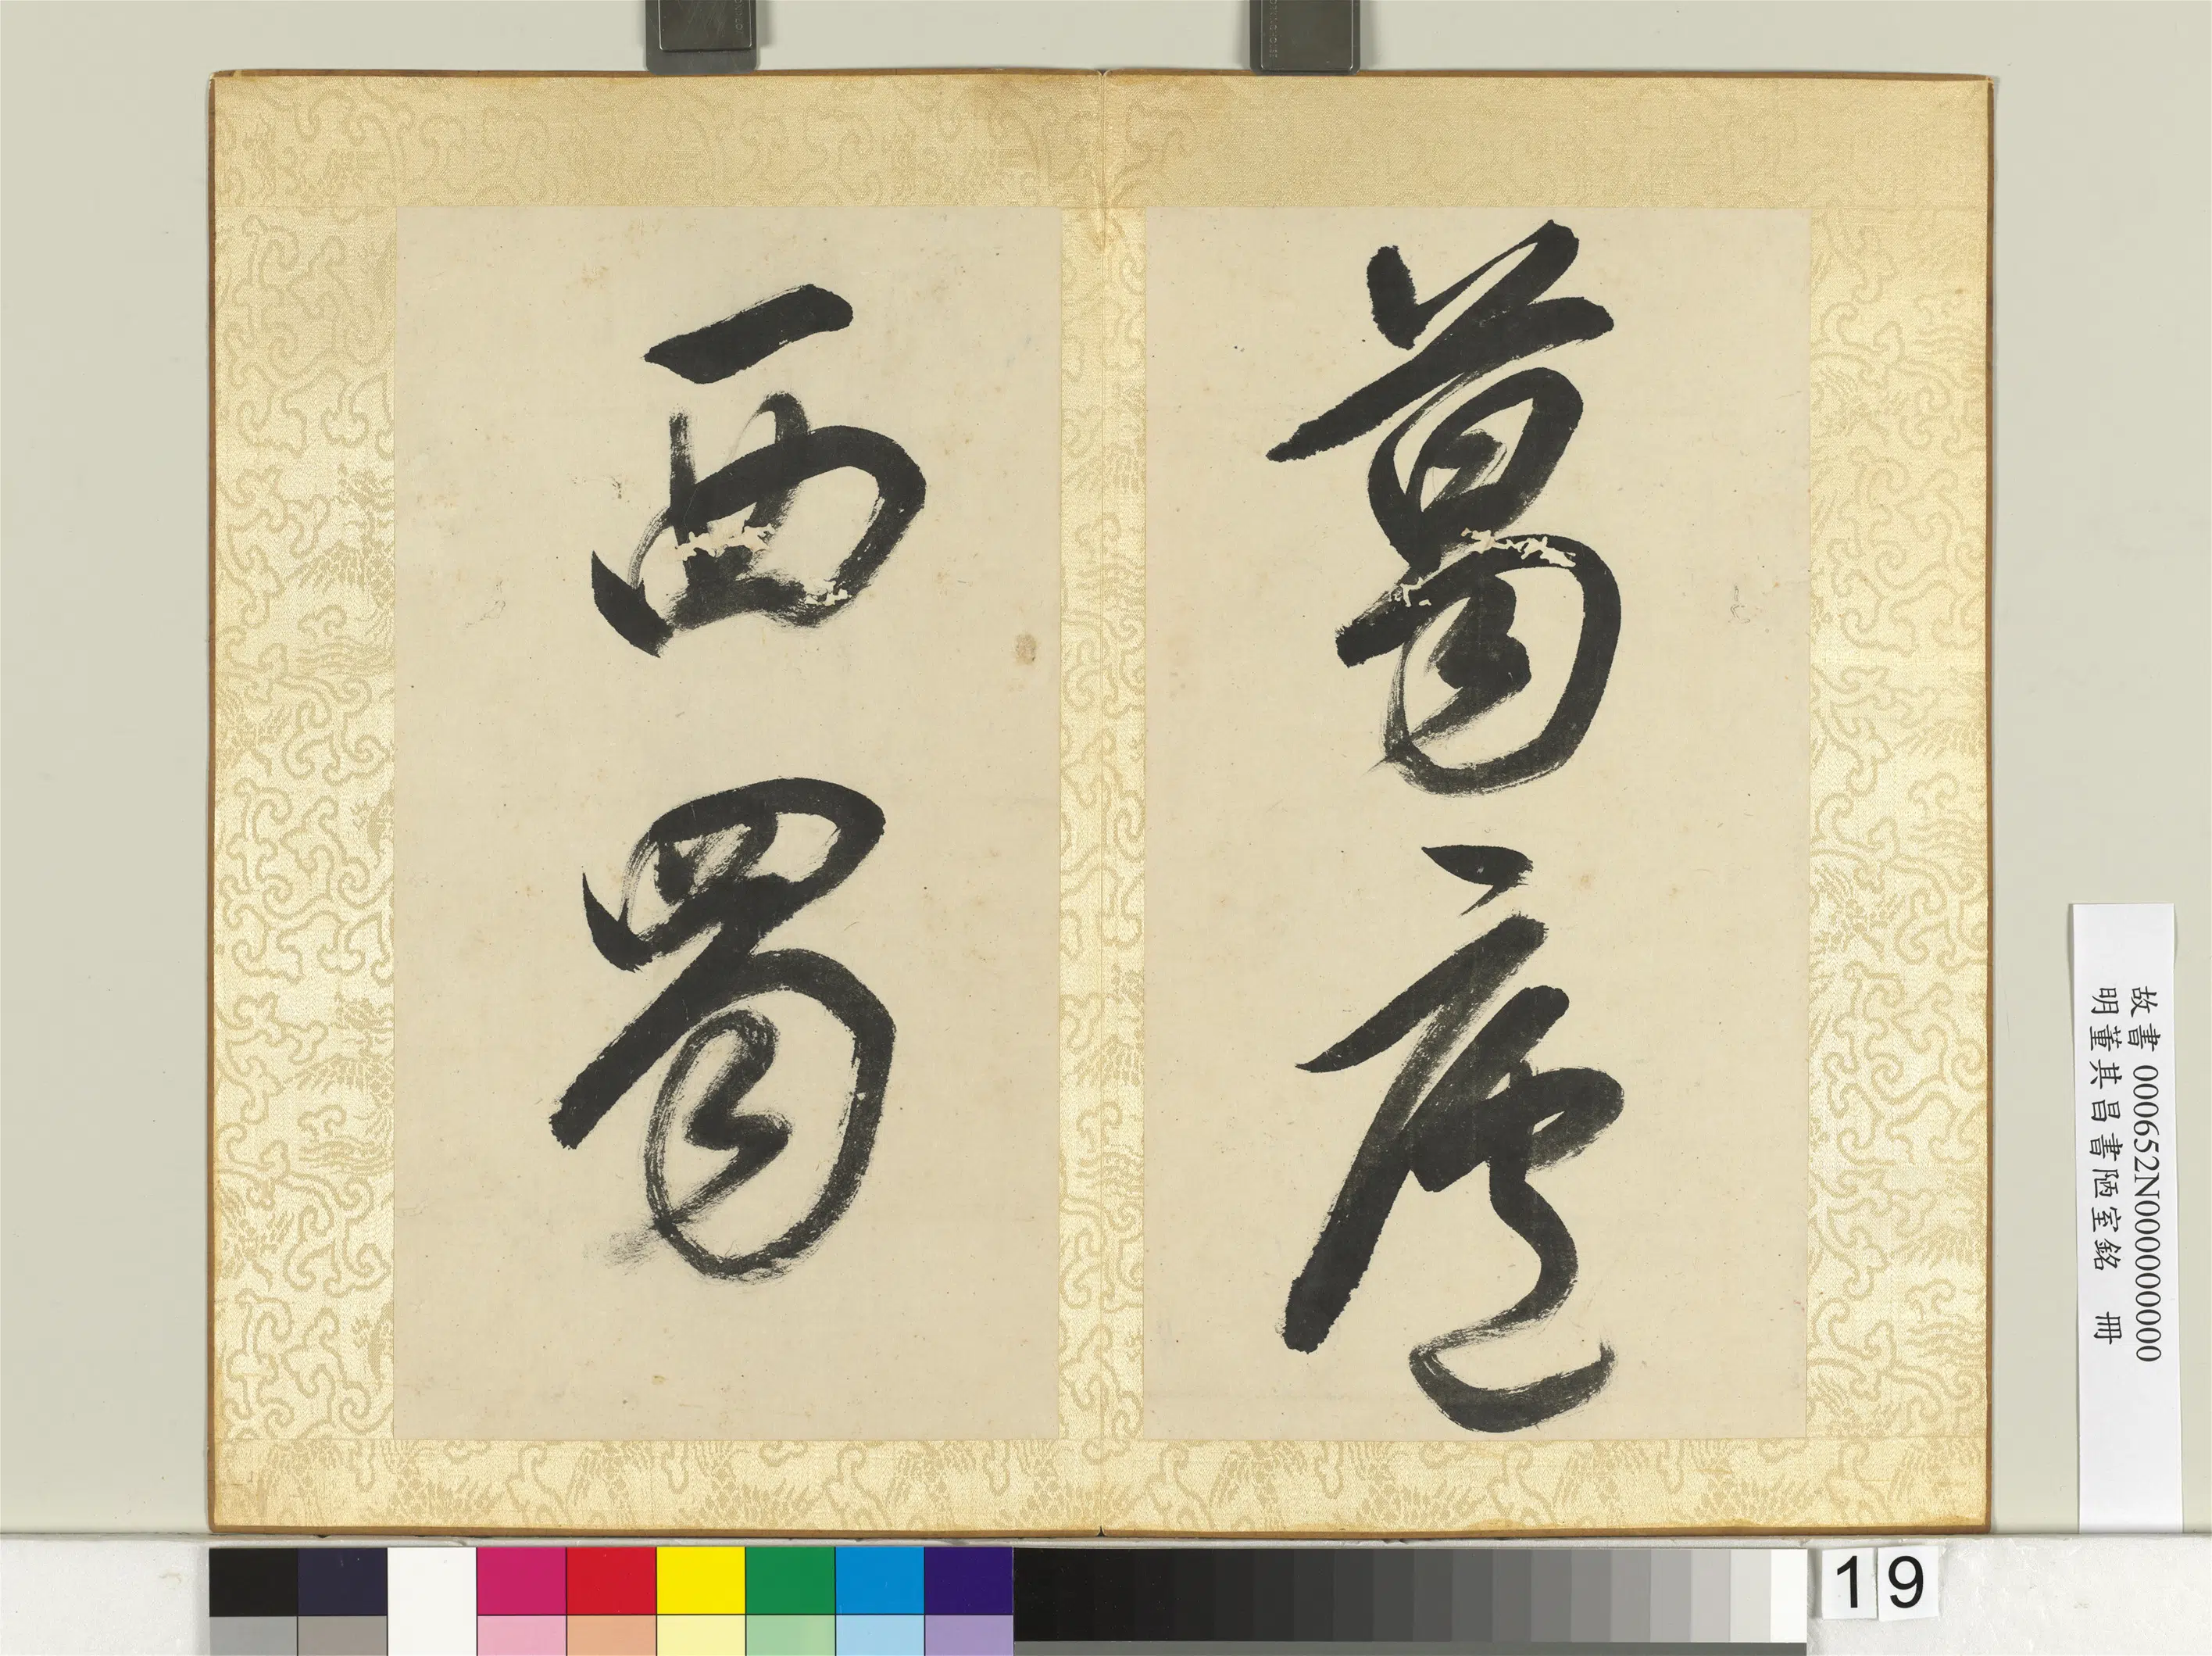 葛廬
西蜀
故書 000652N000000000
明董其昌書陋室銘 冊
19